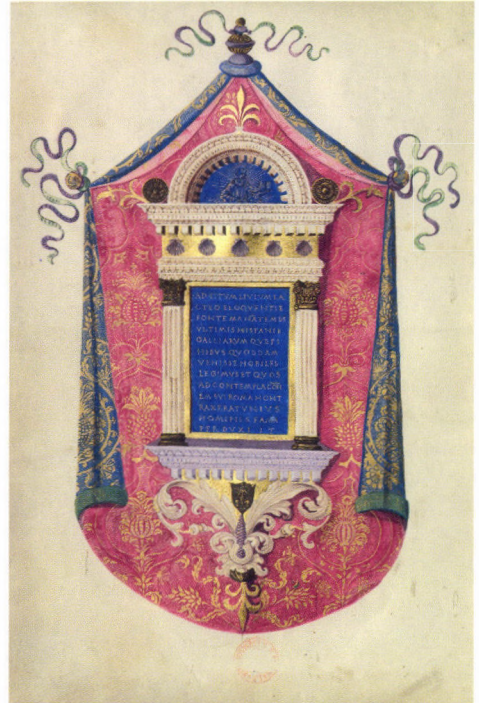 AD TITVM LIVIVM LA
CTEO ELOQVENTIE
FONTE MANATEM DE
VLTIMIS HISPANIE
GALLIARVM QVE FI
NIBVS QVOSDAM
VENISSE NOBILES
LEGIMVS ET QVOS
AD CONTEMPLATIO
EM SVI ROMA NON T
RAXERAT VNIVS
HOMINIS FAMA
PERDVXIT